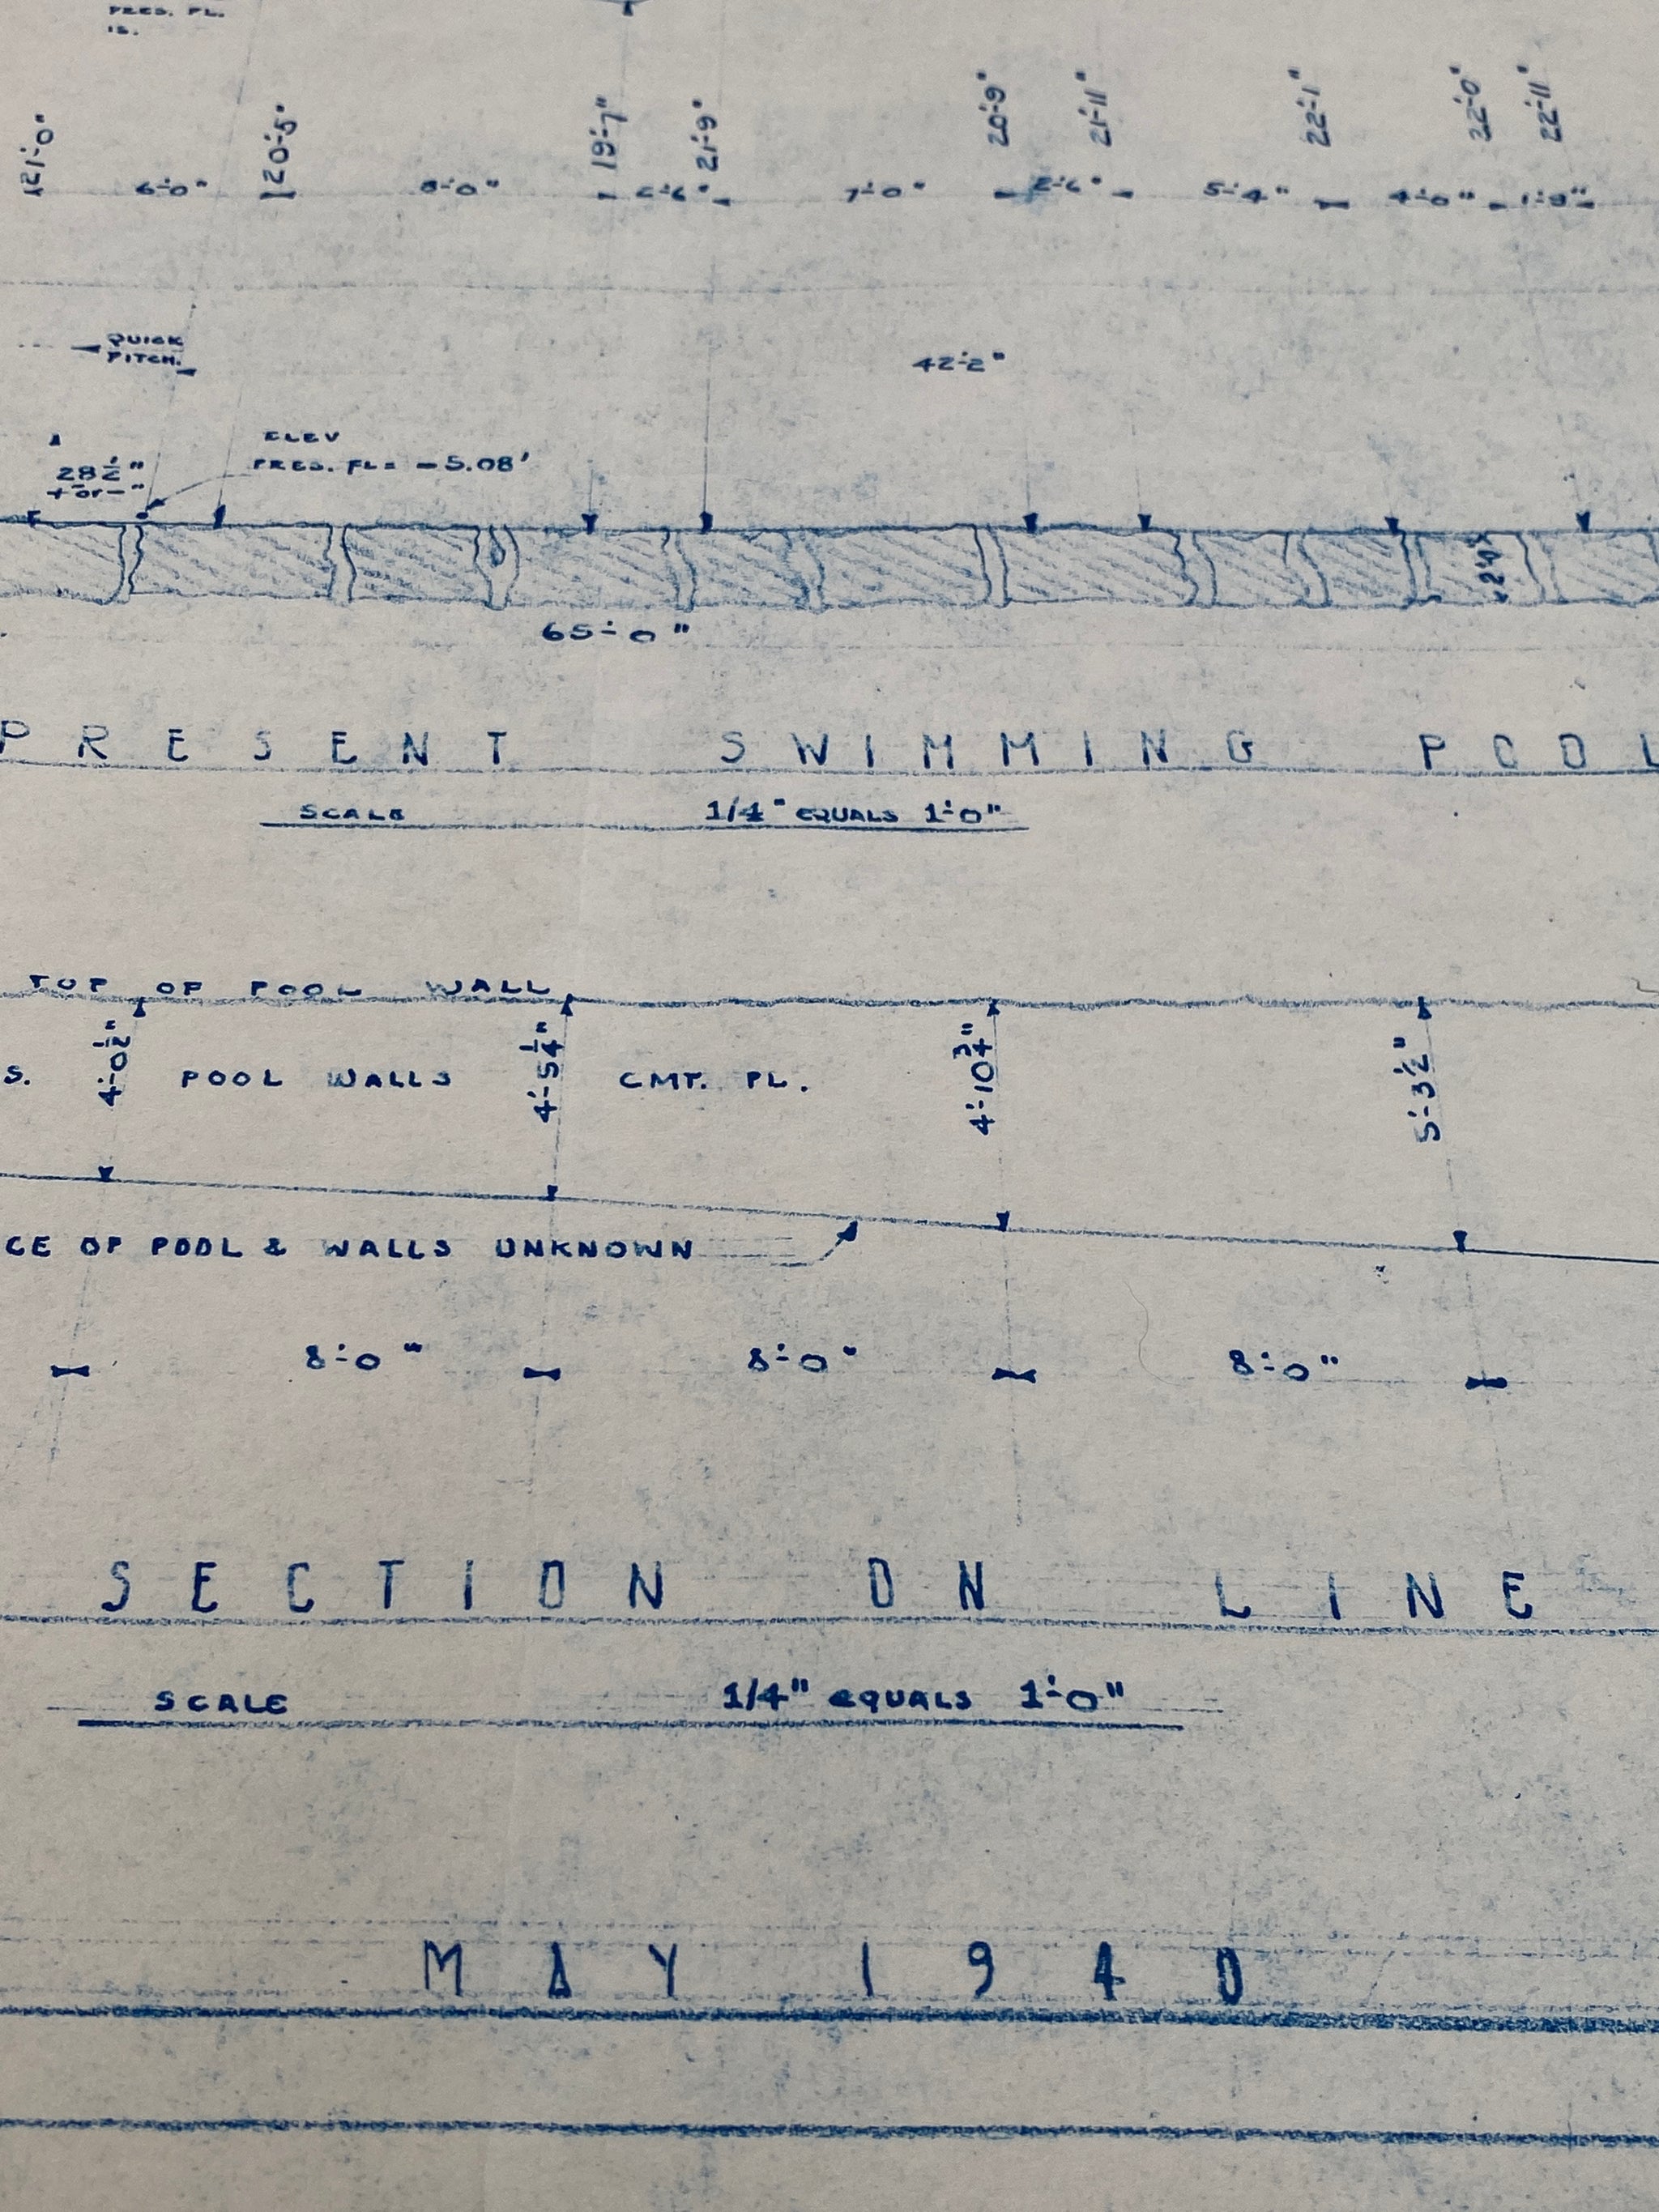 PRES. FL.
IS.
21'-0" 20'-5" 19'-7" 21'-9" 20'-9" 21'-11" 22'-1" 22'-0" 22'-11"
6'-0" 8'-0" 7'-0" 2'-6" 5'-4" 4'-0"
QUICK
PITCH.
42'-2"
ELEV
PRES. FL = -5.08'
28½"
+ or - "
2'-0"
65'-0"
PRESENT SWIMMING POOL
SCALE 1/4" EQUALS 1'-0"
TOP OF POOL WALL
4'-0½" 4'-5¼" 4'-10¾" 5'-3½"
S. POOL WALLS CMT. PL.
CE OF POOL & WALLS UNKNOWN
8'-0" 8'-0" 8'-0"
SECTION ON LINE
SCALE 1/4" EQUALS 1'-0"
MAY 1940